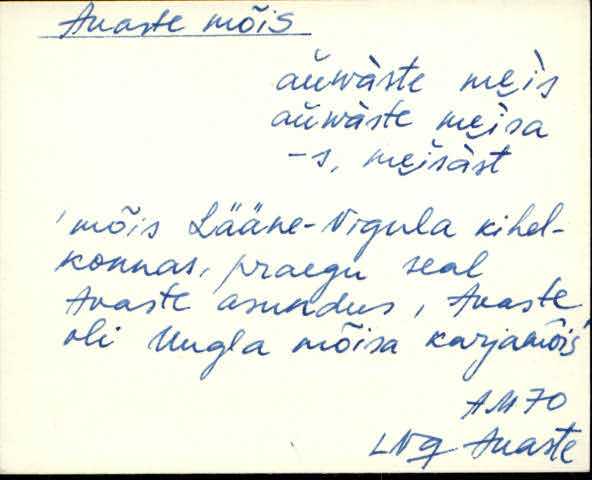 Avaste mõis
aŭwàste mẹis
aŭwàste mẹisa
-s, mẹisàst
'mõis Lääne-Nigula kihel-
konnas, praegu seal
Avaste asundus, Avaste
oli Ungla mõisa karjamõis'
AM 70
LNg Avaste